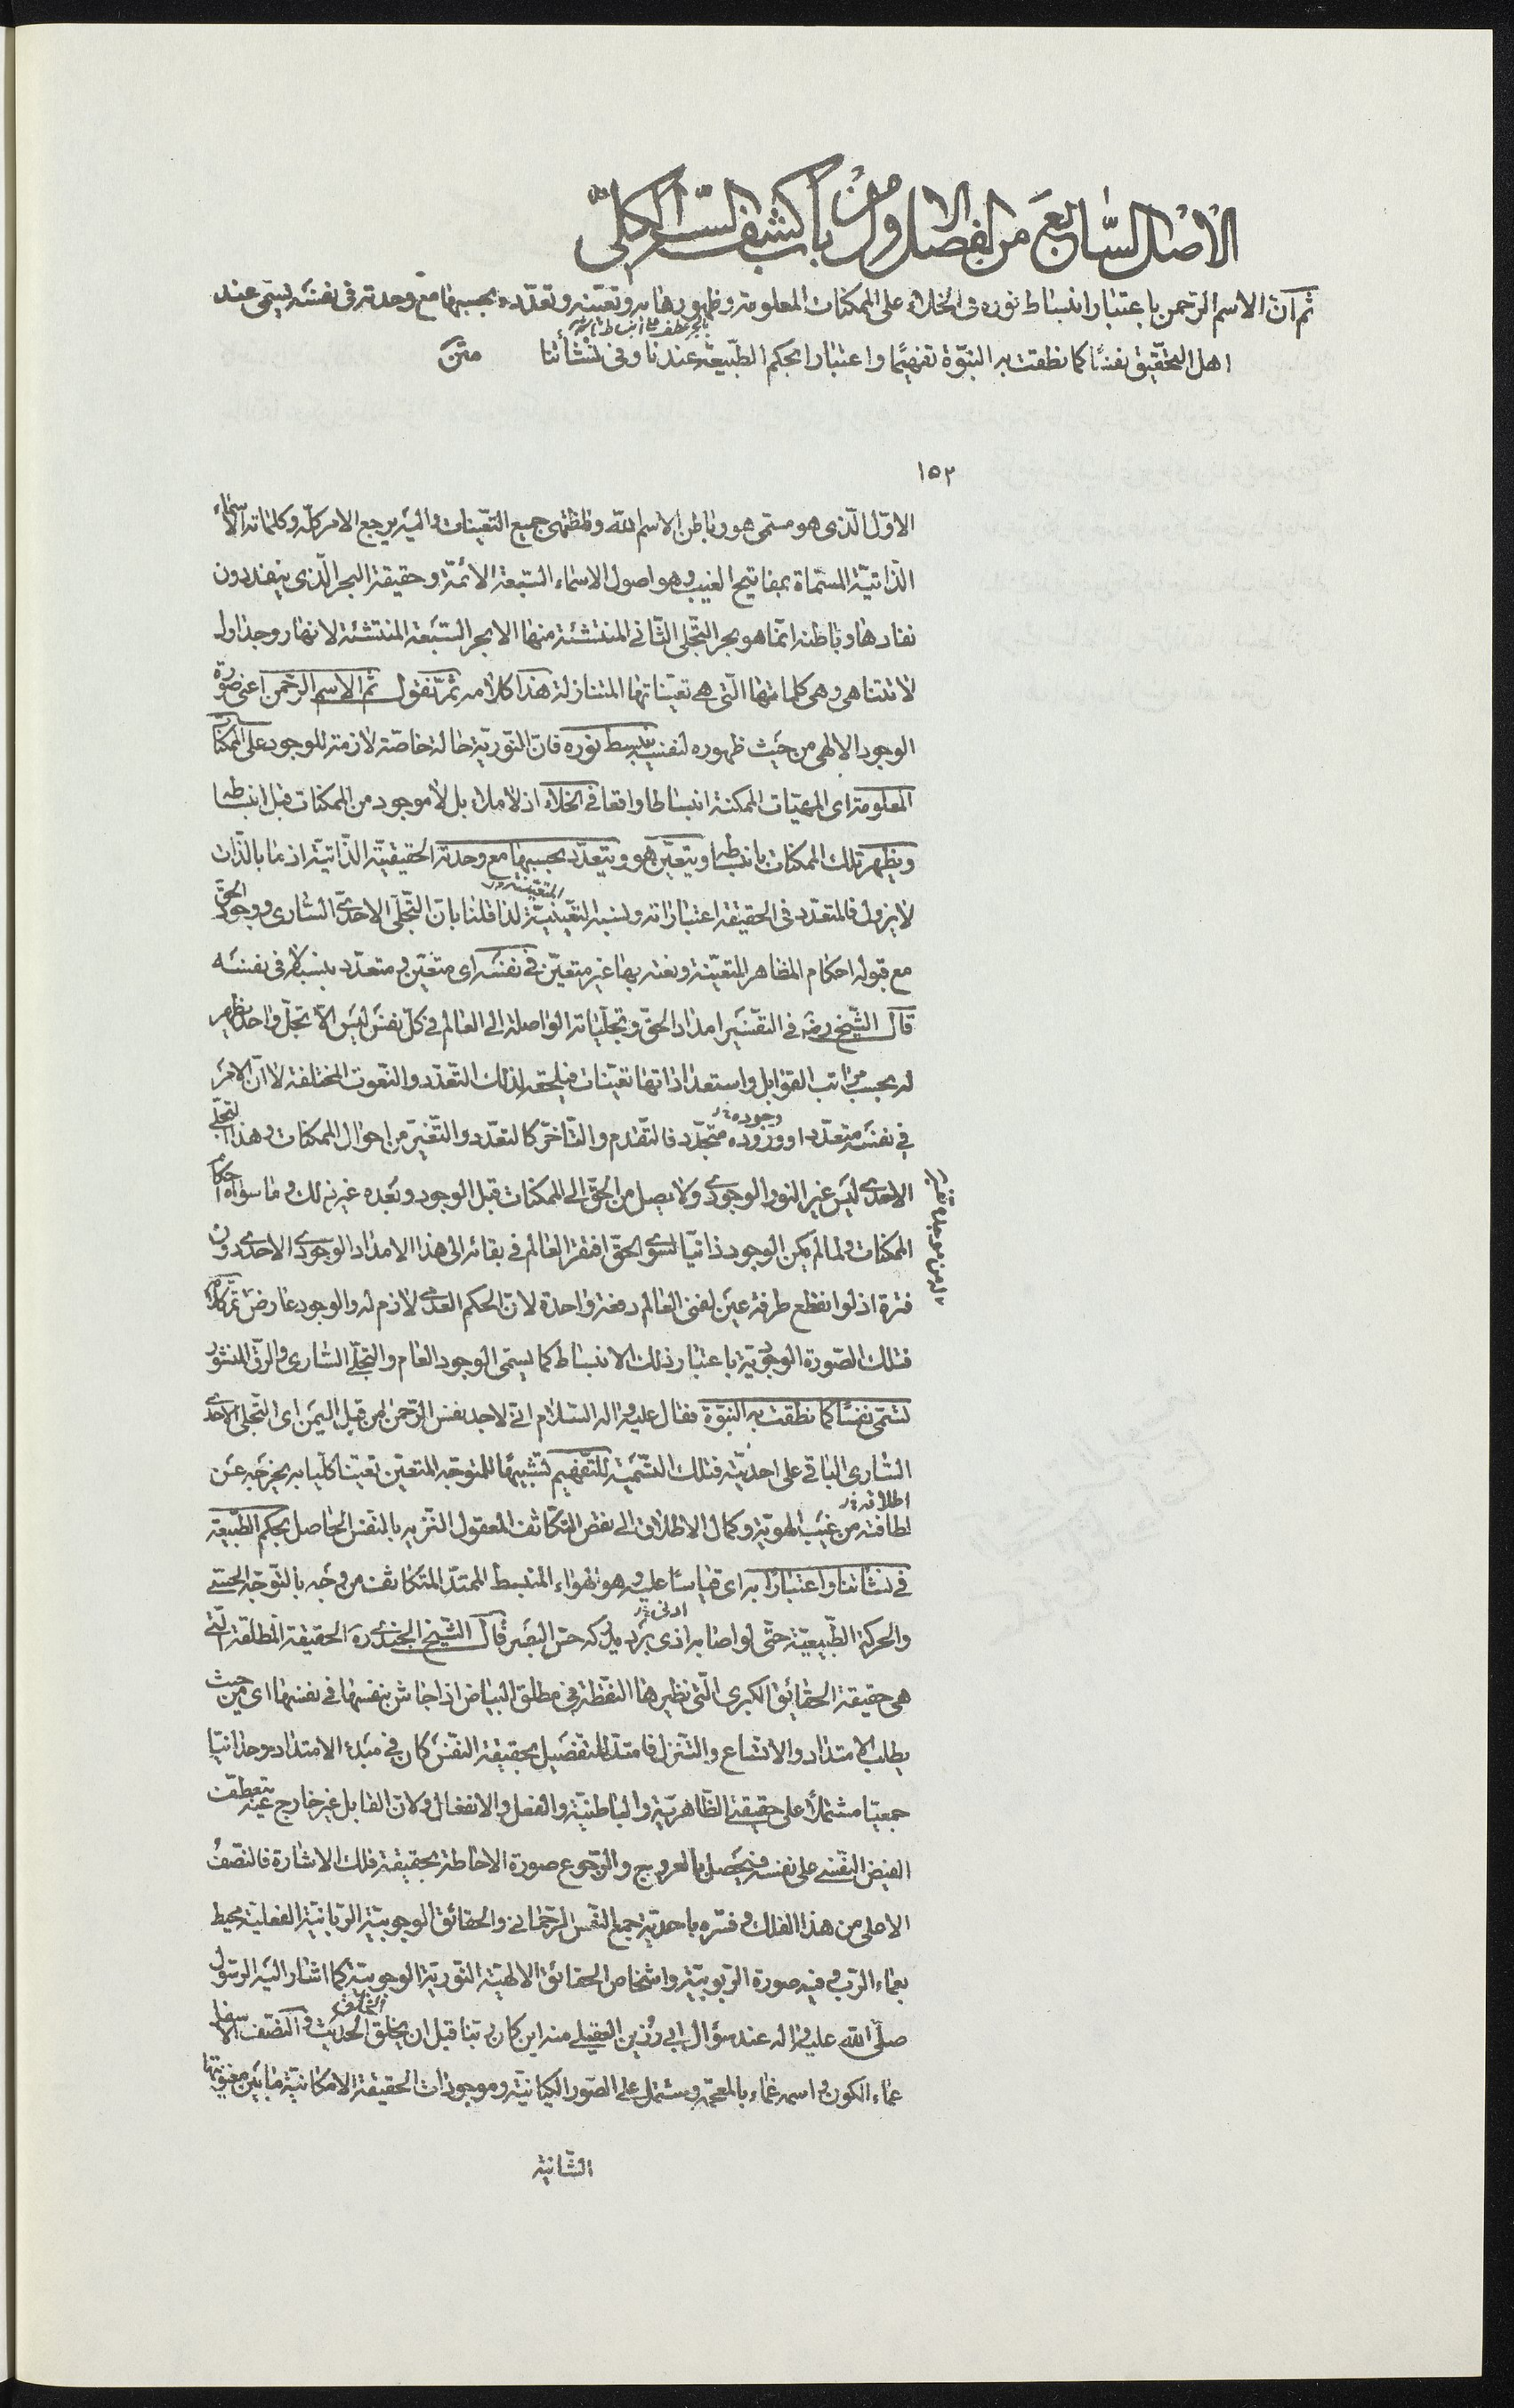 الأصل السابع من الفصل الاول من باب كشف السر الكلى
ثم ان الاسم الرحمن باعتبار انبساط نوره فى الخلاء على الممكنات المعلومة وظهورها به وتعينه وتعدده بحسبها مع وحدته فى نفسه يسمى عند
اهل التحقيق نفسًا كما نطقت به النبوّة تفهيمًا واعتبارا بحكم الطبيعة عندنا وفى نشأتنا متن
١٥٢
الاوّل الّذى هو مسمى هو وباطن الاسم الله وظ جميع التعينات واليه يرجع الامر كلّه وكلماته الاسماء
الذّاتيّة المسمّاة بمفاتيح الغيب وهو اصول الاسماء السّبعة الائمّة وحقيقة البحر الّذى ينفد دون
نفادها وباطنه انّما هو بحر التّجلى الثّانى المنتشئة منها الابحر السّبعة المنتشئة لانهار وجداول
لا تتناهى وهى كلماتها الّتى هى تعيّناتها المتنازلة هذا كلامه ثمّ نقول ثم الاسم الرحمن اعنى صورة
الوجود الالهى من حيث ظهوره لنفسه ينبسط نوره فانّ النّوريّة حالة خاصّة لازمة للوجود على الممكنات
المعلومة اى المهيّات الممكنة انبساطا واقعا فى الخلاء اذ لا ملاء بل لا موجود من الممكنات قبل انبساطه
ويظهر تلك الممكنات بانبساطه ويتعيّن هو ويتعدّد بحسبها مع وحدته الحقيقيّة الذّاتيّة اذ ما بالذّات
لا يزول فالمتعدّد فى الحقيقة اعتباراته ونسبه التعيّنيّة لذا قلنا بانّ التّجلّى الاحدى السّارى ووجود الحقّ
مع قبوله احكام المظاهر المتعيّنة ونعته بها غير متعيّن فى نفسه اى متعيّن ومتعدّد بنسبه لا فى نفسه
قال الشّيخ رضه فى التفسير امداد الحقّ وتجلّياته الواصلة الى العالم فى كلّ نفس ليس الّا تجلّ واحد يظهر
له بحسب مراتب القوابل واستعداداتها تعيّنات فيلحقه لذلك التعدّد والنّعوت المختلفة لا انّ الامر
فى نفسه متعدّد او وروده متجدّد فالتقدم والتّأخّر كالتعدّد والتّغيّر من احوال الممكنات وهذا التجلّى
الاحدى ليس غير النور الوجودى ولا يصل من الحقّ الى الممكنات قبل الوجود وبعده غير ذلك وما سواه احكام
الممكنات ولما لم يكن الوجود ذاتيّا لسوى الحقّ افتقر العالم فى بقائه الى هذا الامداد الوجودى الاحدى دون
فترة اذ لو انقطع طرفة عين لفنى العالم دفعة واحدة لانّ الحكم العدمى لازم له والوجود عارض تم كلامه
فتلك الصّورة الوجوديّة باعتبار ذلك الانبساط كما يسمّى الوجود العام والتجلّى السّارى والرّقّ المنشور
تسمّى نفسًا كما نطقت به النبوّة فقال عليه واله السّلام انّى لاجد نفس الرّحمن من قبل اليمن اى التّجلى الاحدى
السّارى الباقى على احديّته فتلك التّسميّة للتّفهيم تشبيهًا للمتوجّه المتعيّن تعيّنا كلّيا به يخرجه عن
لطافته من غيب الهويّة وكمال الاطلاق الى نقض التكاثف المعقول التنزيه بالنفس الحاصل بحكم الطبيعة
فى نشأتنا واعتبارًا به اى قياسًا عليه وهو الهواء المنبسط الممتدّ المتكاثف من وجه بالتّوجّه الحسّى
والحركة الطّبيعيّة حتّى لو اصابه اذى برد يدركه حسّ البصر قال الشّيخ الجندى ره الحقيقة المطلقة الّتى
هى حقيقة الحقائق الكبرى الّتى نظيرها النّقطة فى مطلق البياض اذا جاش بنفسها فى نفسها اى من حيث
يطلب الامتداد والاتّساع والتنزل فامتدّ للتفصيل بحقيقة النفس كان فى مبدء الامتداد وحدانيّا
جمعيّا مشتملًا على حقيقتى الظّاهريّة والباطنيّة والفعل والانفعال ولانّ القابل غير خارج عنه تعطّفت
الفيض النّفسى على نفسه فيحصل بالعروج والرّجوع صورة الاحاطة بحقيقة فلك الاشارة فالنّصف
الاعلى من هذا الفلك وفسّره باحديّة جمع النّفس الرّحمانى والحقائق الوجوبيّة الربّانيّة الفعليّة محيط
بعماء الرّب وفيه صورة الرّبوبيّة واشخاص الحقائق الالهيّة النّوريّة الوجوبيّة كما اشار اليه الرسّول
صلّى الله عليه واله عند سؤال ابى رزين العقيلى منه اين كان ربّنا قبل ان يخلق الخلق الحديث والنّصف الاسفل
عماء الكون واسمه غماء بالمعجمة ويشتمل على الصّور الكيانيّة وموجودات الحقيقة الامكانيّة ما بين
الثّانية